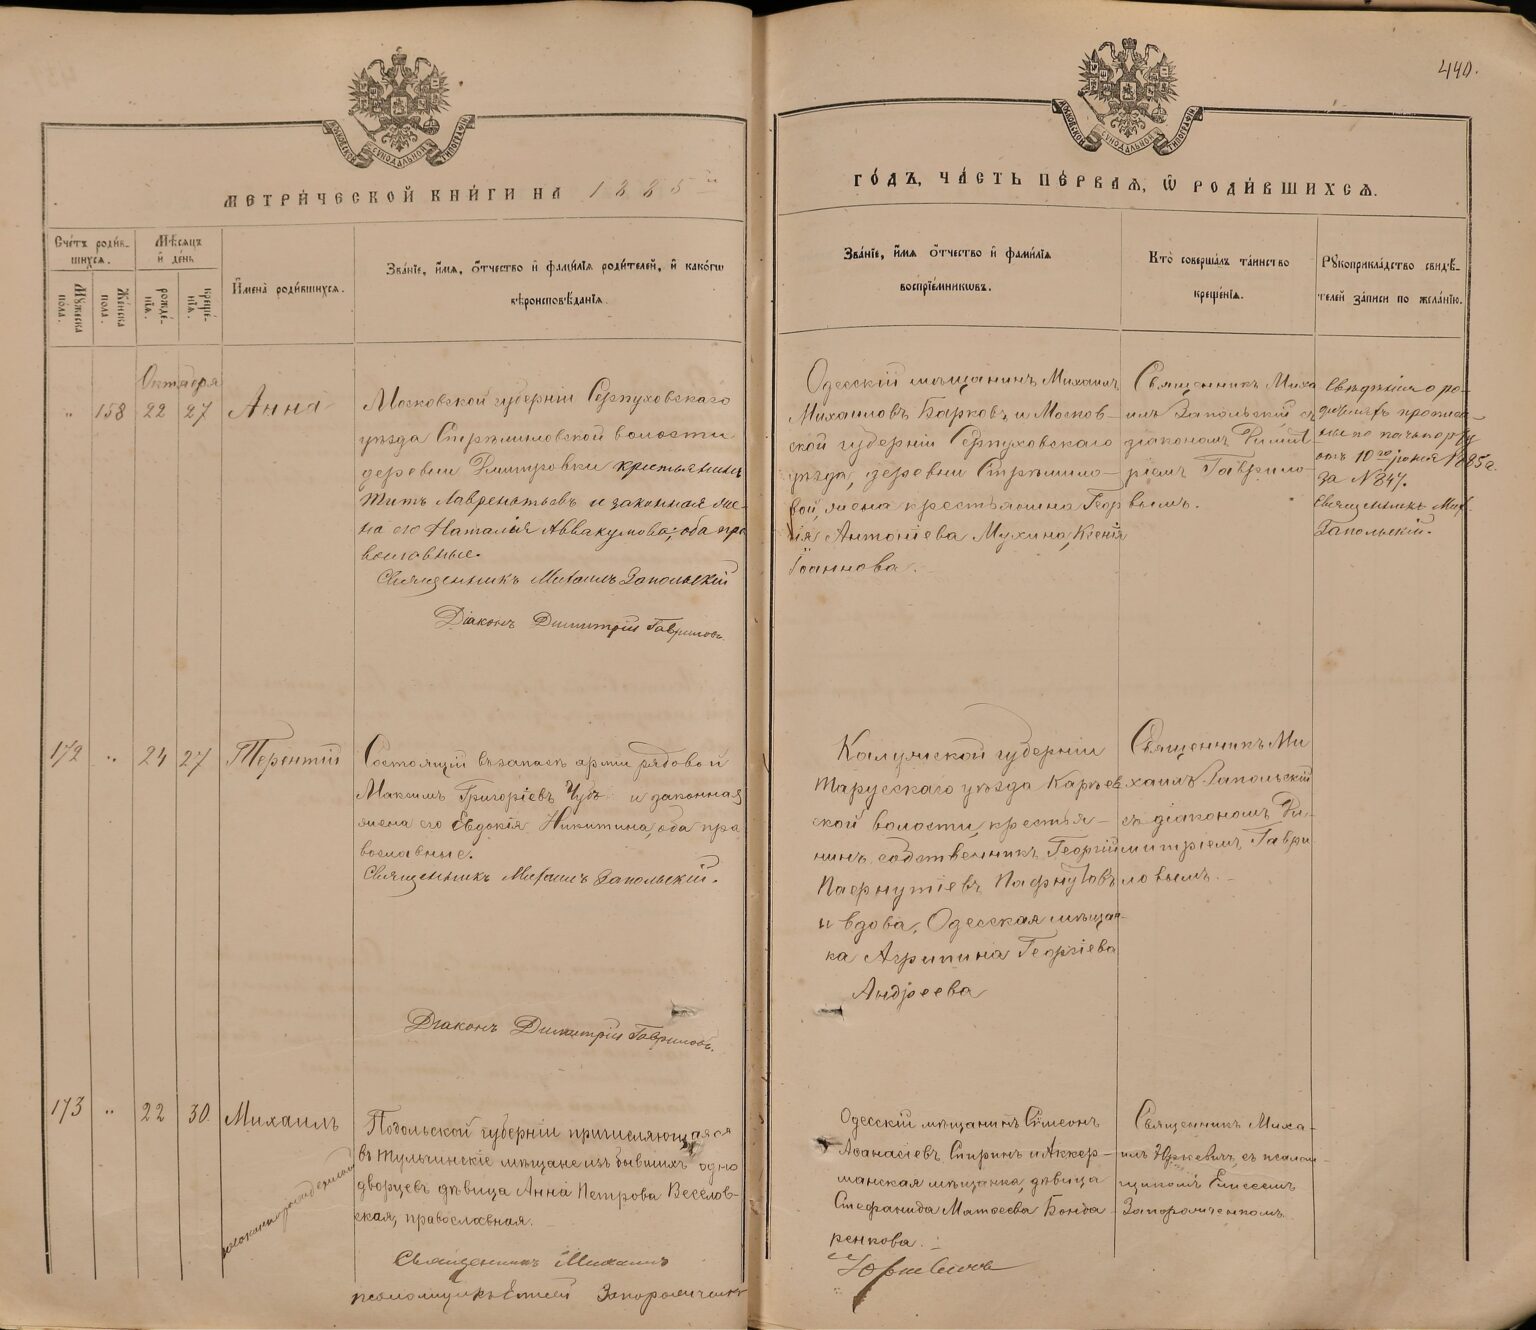 440.
МОСКОВСКОЙ СѴНОДАЛЬНОЙ ТИПОГРАФІИ
МОСКОВСКОЙ СѴНОДАЛЬНОЙ ТИПОГРАФІИ
МЕТРИ́ЧЕСКОЙ КНИ́ГИ НА 1885 й
ГО́ДЪ, ЧА́СТЬ ПЕ́РВАЯ, Ѿ РОДИ́ВШИХСЯ.
Сче́тъ роди́в-
шихся.
Му́жеска по́ла.
Же́нска по́ла.
Мѣ́сяцъ
и҆ де́нь
рожде́-
нія.
креще́-
нія.
И҆мена̀ роди́вшихся.
Зва́ніе, и҆́мя, о҆́тчество и҆ фами́лія роди́телей, и҆ како́гѡ
вѣроисповѣ́данія.
Зва́ніе, и҆́мя о҆́тчество и҆ фами́лія
воспріе́мникѡвъ.
Кто̀ соверша́лъ та́инство
креще́нія.
Рукоприкла́дство свидѣ́-
телей за́писи по жела́нію.
Октября
"
158
22
27
Анна
Московской губерніи Серпуховскаго
уѣзда Стрѣмиловской волости
деревни Дмитровки крестьянинъ
Титъ Лаврентьевъ и законная же-
на его Наталія Аввакумова, оба пра
вославные.
Священникъ Михаилъ Запольскій
Діаконъ Димитрій Гавриловъ.
Одесскій мѣщанинъ Михаилъ
Михаиловъ Барковъ и Москов-
ской губерніи Серпуховскаго
уѣзда, деревни Стрѣмило-
вой, жена крестьянина Геор
гія Антоніева Мухина, Ксенія
Іоаннова.
Священникъ Миха
илъ Запольскій съ
діакономъ Димит
ріемъ Гаврило-
вымъ.
Свѣдѣнія о ро-
дителяхъ прописа-
ны по паспорту
отъ 10го іюня 1885 г.
за № 847.
Священникъ Мих.
Запольскій.
172
"
24
27
Терентій
Состоящій въ запасѣ арміи рядовой
Максимъ Григоріевъ Чубъ и законная
жена его Евдокія Никитина, оба пра
вославные.
Священникъ Михаилъ Запольскій.
Діаконъ Димитрій Гавриловъ.
Калужской губерніи
Тарусскаго уѣзда Карѣев
ской волости, крестья-
нинъ собственникъ Георгій
Пафнутіевъ Пафнутовъ
и вдова, Одесская мѣщан-
ка Агрипина Георгіева
Андреева
Священникъ Ми
хаилъ Запольскій
съ діакономъ Ди-
митріемъ Гаври
ловымъ.
173
"
22
30
Михаилъ
незаконнорожденный
Подольской губерніи причисляющаяся
въ Тульчинскіе мѣщане изъ бывшихъ одно
дворцевъ дѣвица Анна Петрова Веселов-
ская, православная.
Священникъ Михаилъ
псаломщикъ Елисей Запорожченко
Одесскій мѣщанинъ Сѵмеонъ
Аѳанасіевъ Спиринъ и Аккер-
манская мѣщанка, дѣвица
Стефанида Матѳеева Бонда
ренкова.
Юркевичъ
Священникъ Миха-
илъ Юркевичъ съ псалом-
щикомъ Елисеемъ
Запорожченкомъ